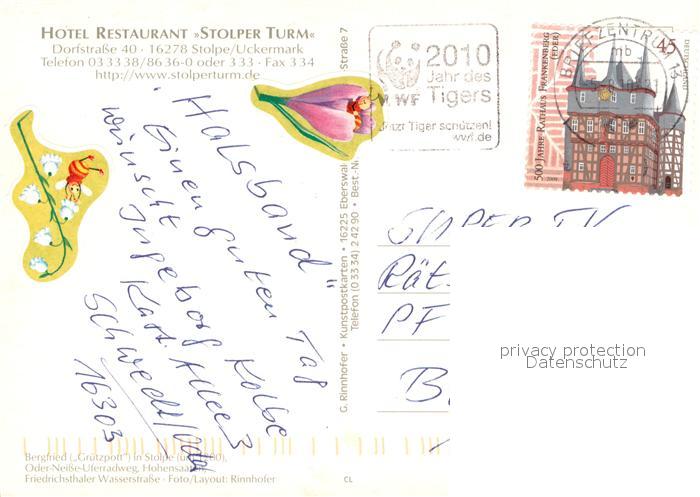 HOTEL RESTAURANT »STOLPER TURM«
Dorfstraße 40 · 16278 Stolpe/Uckermark
Telefon 03 33 38/86 36-0 oder 333 · Fax 334
http://www.stolperturm.de
„Halsband“
Einen guten Tag
wünscht Ingeborg Kolbe
Karl Allee 3
Schwedt/Oder
16303
Bergfried („Grützpott“) in Stolpe
Oder-Neiße-Uferradweg, Hohensaaten
Friedrichsthaler Wasserstraße · Foto/Layout: Rinnhofer
CL
G. Rinnhofer • Kunstpostkarten • 16225 Eberswal
Straße 7
Telefon (0 33 34) 2 42 90 • Best.-N
WWF
2010
Jahr des
Tigers
Jetzt Tiger schützen!
wwf.de
BRIEFZENTRUM
mb
500 JAHRE RATHAUS FRANKENBERG (EDER)
45
SUPER TV
Rät
PF
B
privacy protection
Datenschutz